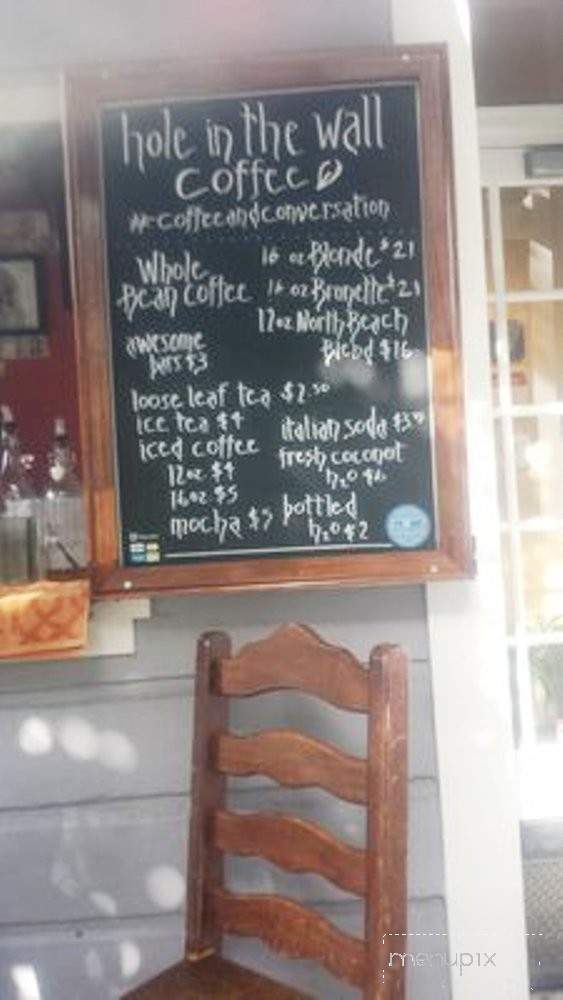 hole in the wall
coffee
#coffeeandconversation
Whole
Bean Coffee
16 oz Blonde $21
16 oz Brunette $21
12oz North Beach
Blebd $16
awesome
bars $3
loose leaf tea $2.50
ice tea $4
iced coffee
12oz $4
16oz $5
mocha $5
italian soda $3.50
fresh coconot
h2o $6
bottled
h2o $2
menupix